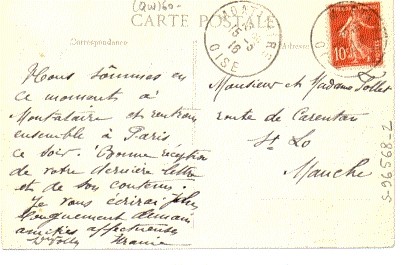 (QW)60-
CARTE POSTALE
Correspondance
Adresse
MONTATAIRE
OISE
10
Nous sommes en
ce moment à
Montataire et rentrons
ensemble à Paris
ce soir. Bonne réception
de votre dernière lettre
et de son contenu.
Je vous écrirai plus
longuement demain
amitiés affectueuses
Uranie
Monsieur et Madame Follet
route de Carentan
St Lo
Manche
S-96568-2